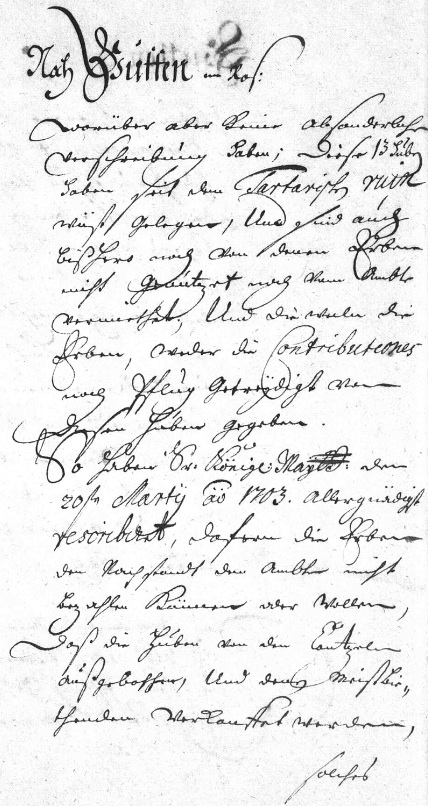 Noch Gutten im Ros:
Worüber aber keine absonderliche
verschreibung haben; Diese 13 Huben
haben seit dem Tartarisch ruin
wüst gelegen, Und sind auch
bisshero noch von denen Erben
nicht genützet noch vom Ambte
vermiethet, Und dieweiln die
Erben, weder die Contributiones
noch Pflug Getreydigt von
diesen Huben gegeben.
So haben Sr. Königl: Maytt: den
20st Martij ao 1703. allergnädigst
rescribiret, dafern die Erben
den Rachstandt dem Ambte nicht
bezahlen können oder wollen,
Daß die Huben von den Cantzeln
außgebothen, Und dem Meistbie-
thenden verkauffet werden,
solches